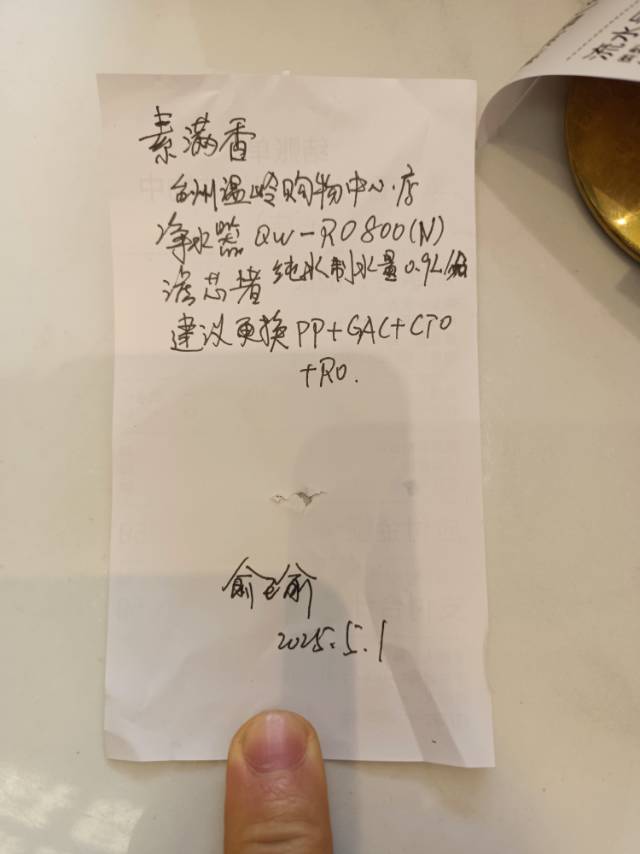 流水
素满香
台州温岭购物中心店
净水器 QW-RO800(N)
滤芯堵 纯水制水量0.9L/
建议更换PP+GAC+CTO
+RO.
俞
2025.5.1